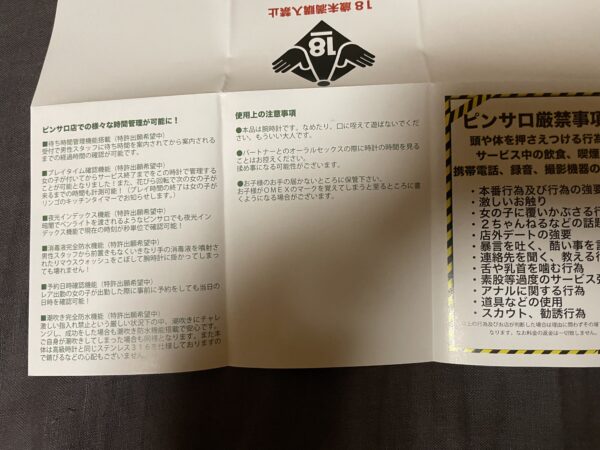 18歳未満購入禁止
18
ピンサロ店での様々な時間管理が可能に!
■待ち時間管理機能搭載（特許出願希望中）
受付で男性スタッフに待ち時間を案内されてから案内される
までの経過時間の確認が可能です。
■プレイタイム確認機能（特許出願希望中）
女の子が付いてからサービス終了までをこの時計で管理する
ことが可能となりました！また、花びら回転で次の女の子が
来るまでの時間も計測可能！（プレイ時間の終了は女の子が
リンゴのキッチンタイマーでお知らせします。）
■夜光インデックス機能（特許出願希望中）
暗闇でペンライトを渡されるようなピンサロでも夜光イン
デックス機能で現在の時刻が秒単位で確認可能！
■消毒液完全防水機能（特許出願希望中）
男性スタッフから前置きもなくいきなり手の消毒液を噴射さ
れたりマウスウォッシュをこぼして腕時計に掛かってしまっ
ても壊れません！
■予約日時確認機能（特許出願希望中）
レア出勤の女の子が出勤した際に事前に予約をしても当日の
日時を確認可能！
■潮吹き完全防水機能（特許出願希望中）
激しい指入れ禁止という厳しい状況下の中、潮吹きにチャレ
ンジし、成功をした場合も潮吹き防水機能搭載で安心です。
ご自身が潮吹きしてしまった場合も同様となります。また本
体は高級時計と同じステンレス316を仕様しておりますの
で錆びるなどの心配もございません。
使用上の注意事項
●本品は腕時計です。なめたり、口に咥えて遊ばないでくだ
さい。もういい大人です。
●パートナーとのオーラルセックスの際に時計の時間を見る
ことはお控えください。
揉め事になる可能性がございます。
●お子様のお手の届かないところに保管下さい。
お子様がOMEXのマークを覚えてしまうと至るところに書
くようになる場合がございます。
ピンサロ厳禁事項
頭や体を押さえつける行為
サービス中の飲食、喫煙
携帯電話、録音、撮影機器の
・本番行為及び行為の強要
・激しいお触り
・女の子に覆いかぶさる行
・2ちゃんねるなどの話題
・店外デートの強要
・暴言を吐く、酷い事を言
・連絡先を聞く、教える行
・舌や乳首を噛む行為
・素股等過度のサービス強
・アナルに関する行為
・道具などの使用
・スカウト、勧誘行為
以上の行為及びお店が判断した場合は理由に問わずその場で
なります。なお料金の返金は一切致しません。